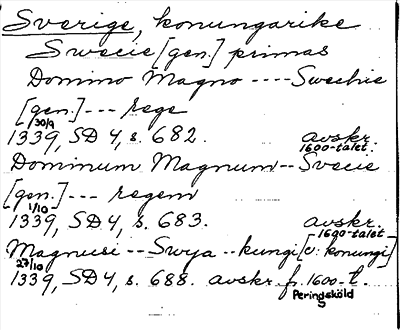 Sverige, konungarike
Swecie [gen.] primas
Domino Magno ---- Swechie
[gen.] --- rege
30/9
1339, SD 4, s. 682. avskr.
1600-talet.
Dominum Magnum -- Svecie
[gen.] --- regem
1/10
1339, SD 4, s. 683. avskr.
1600-talet
Magnusi -- Swja -- kungi [ɔ: konungi]
27/10
1339, SD 4, s. 688. avskr. fr. 1600-t.
Peringsköld